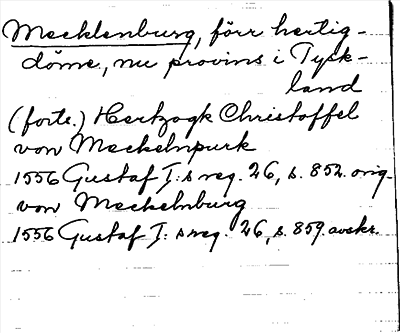 Mecklenburg, förr hertig-
döme, nu provins i Tysk-
land
(forts.) Hertzogk Christoffel
von Meckelnpurk
1556 Gustaf I:s reg. 26, s. 852. orig.
von Meckelnburg
1556 Gustaf I:s reg. 26, s. 859. avskr.